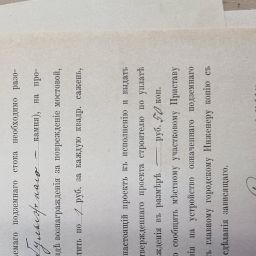 емаго подземнаго стока необходимо разо-
булыжнаго — камня), на про-
дѣ вознагражденія за поврежденіе мостовой,
тить по 1 руб. за каждую квадр. сажень,
настоящій проектъ къ исполненію и выдать
твержденнаго проекта строителю по уплатѣ
жденія въ размѣрѣ — руб. 50 коп.
о сообщить мѣстному участковому Приставу
нія на устройство означеннаго подземнаго
ь главному городскому Инженеру копію съ
сдѣланія зависящаго.